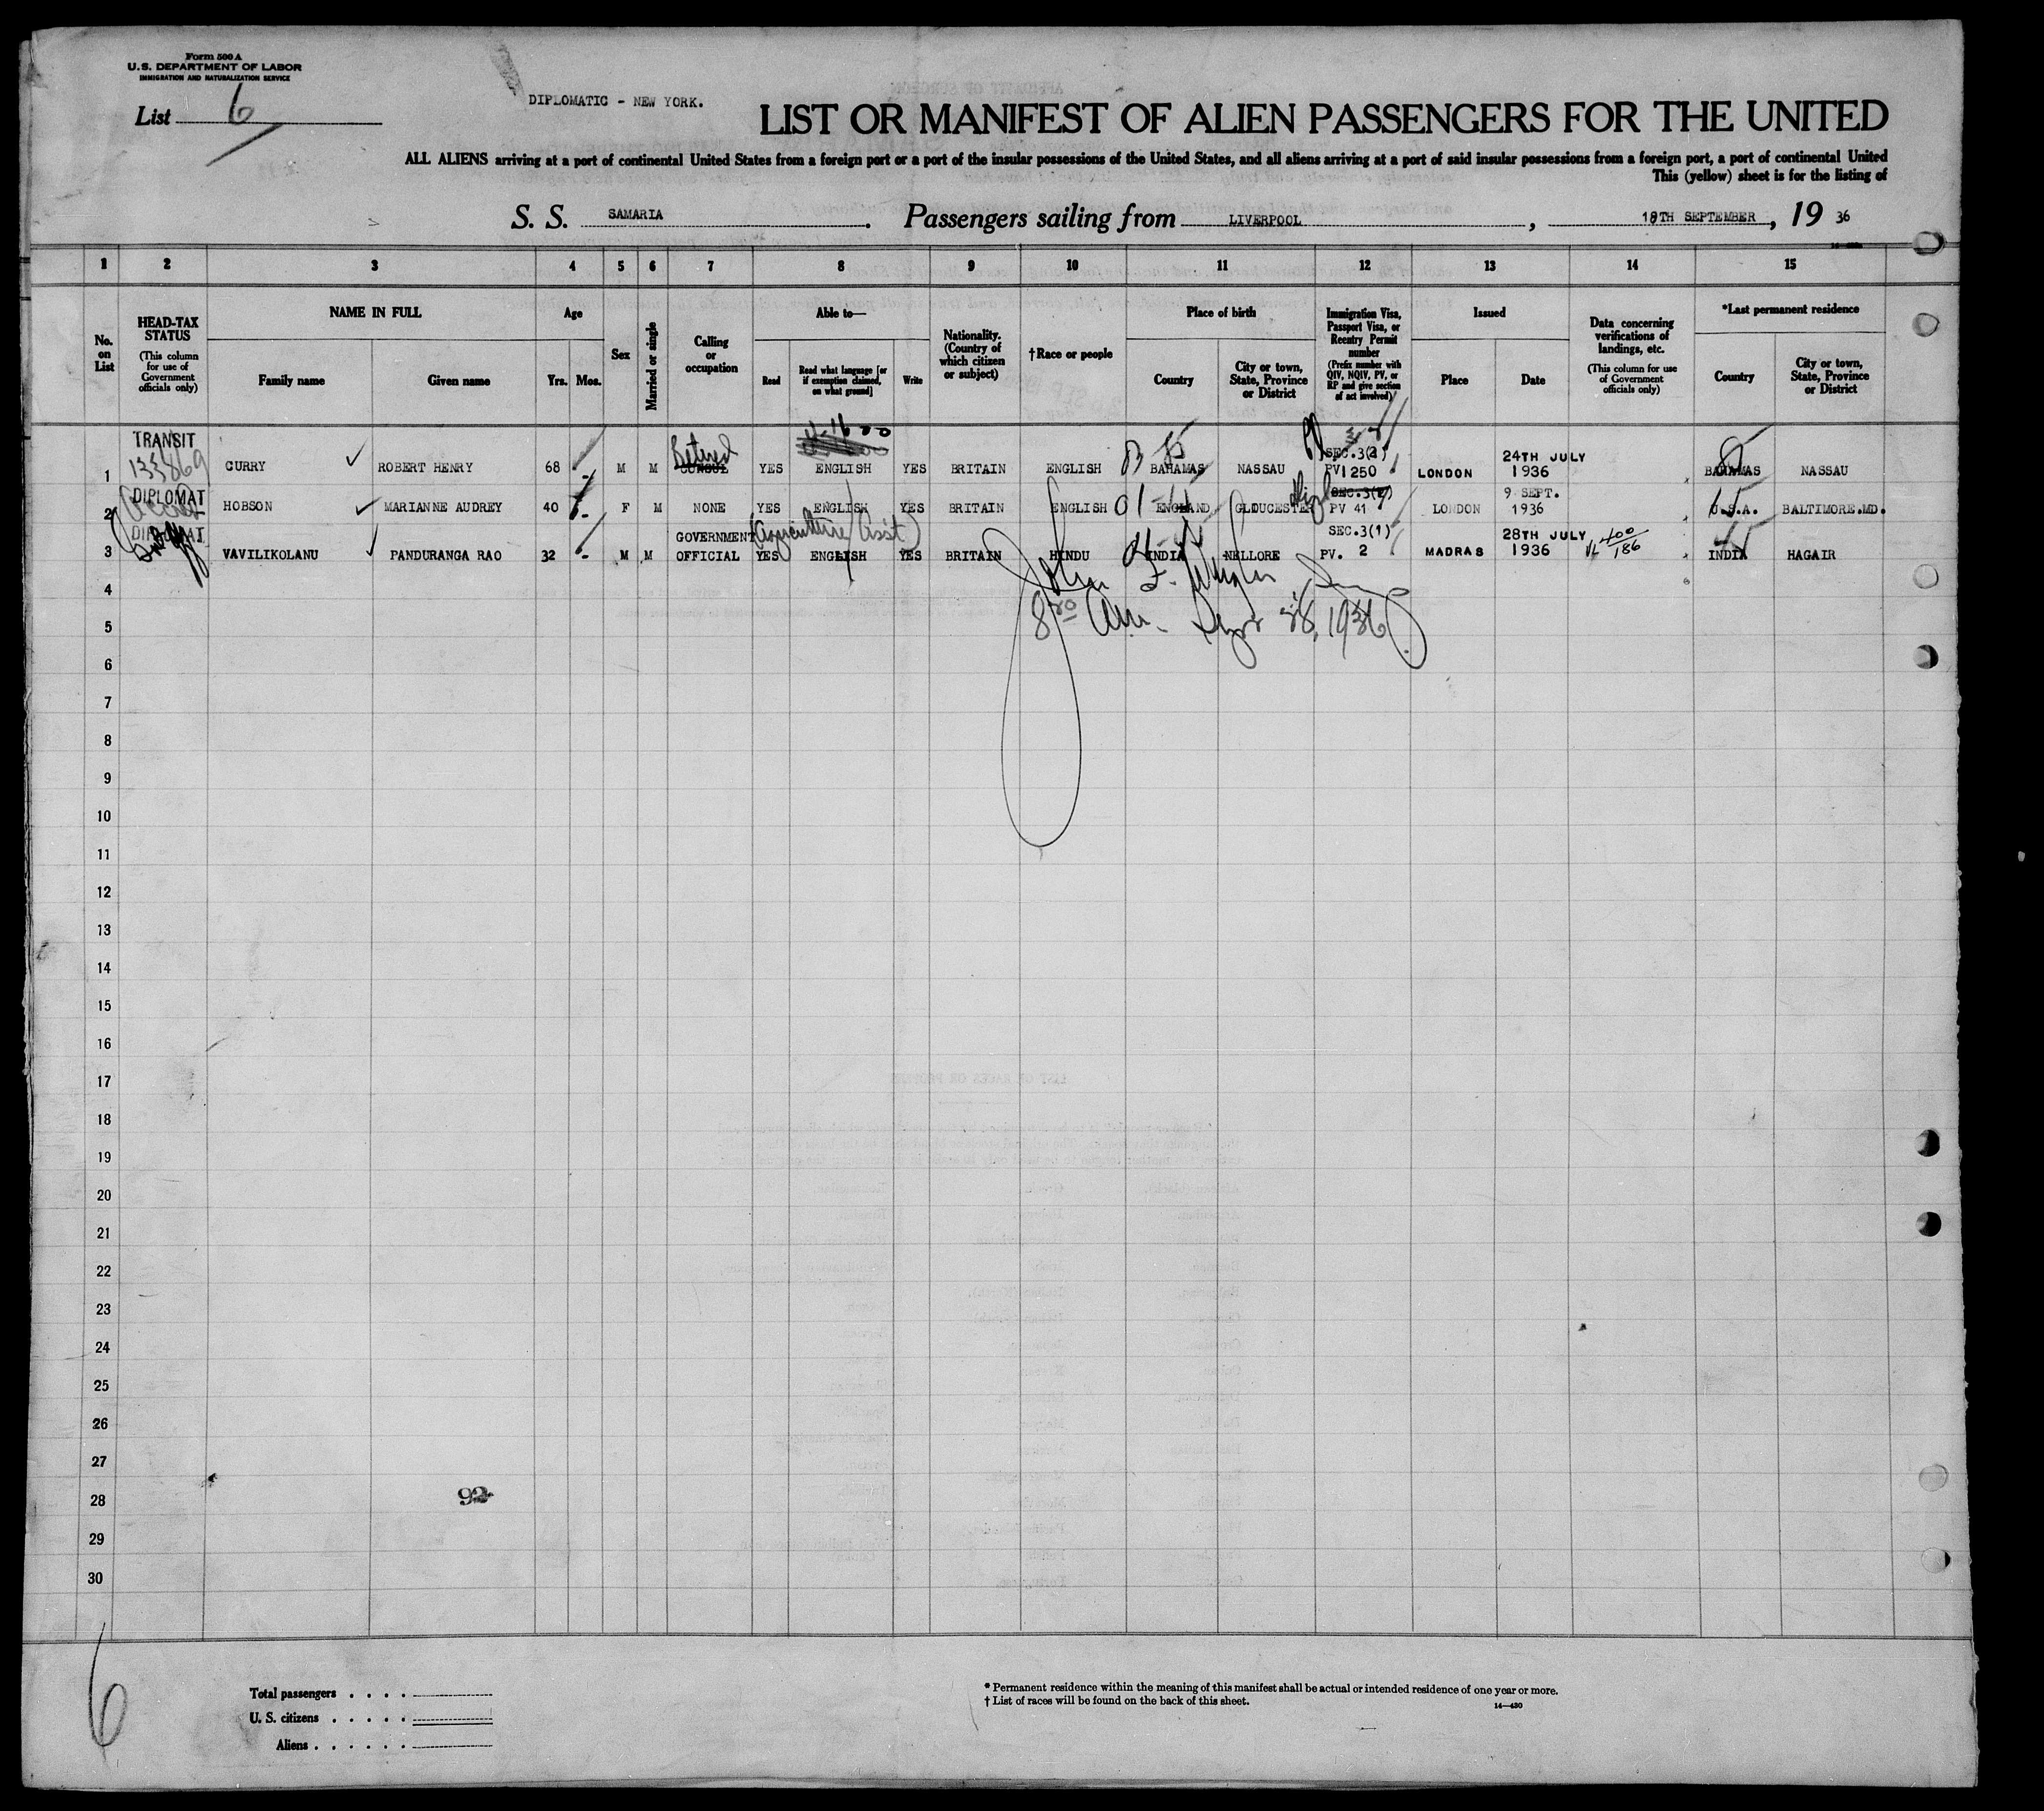 Form 500 A
U. S. DEPARTMENT OF LABOR
IMMIGRATION AND NATURALIZATION SERVICE
List 6
DIPLOMATIC - NEW YORK.
LIST OR MANIFEST OF ALIEN PASSENGERS FOR THE UNITED
ALL ALIENS arriving at a port of continental United States from a foreign port or a port of the insular possessions of the United States, and all aliens arriving at a port of said insular possessions from a foreign port, a port of continental United
This (yellow) sheet is for the listing of
S. S. SAMARIA. Passengers sailing from LIVERPOOL, 18TH SEPTEMBER, 19 36
1 2 3 4 5 6 7 8 9 10 11 12 13 14 15
No. on List
HEAD-TAX STATUS (This column for use of Government officials only)
NAME IN FULL
Family name
Given name
Age
Yrs. Mos.
Sex
Married or single
Calling or occupation
Able to—
Read
Read what language [or if exemption claimed, on what ground]
Write
Nationality. (Country of which citizen or subject)
†Race or people
Place of birth
Country
City or town, State, Province or District
Immigration Visa, Passport Visa, or Reentry Permit number (Prefix number with QIV, NQIV, PV, or RP and give section of act involved)
Issued
Place
Date
Data concerning verifications of landings, etc. (This column for use of Government officials only)
*Last permanent residence
Country
City or town, State, Province or District
1 TRANSIT 133869 CURRY ROBERT HENRY 68 - M M Retired CONSUL YES ENGLISH YES BRITAIN ENGLISH BAHAMAS NASSAU SEC.3(3) PV1250 LONDON 24TH JULY 1936 BAHAMAS NASSAU
2 DIPLOMAT HOBSON MARIANNE AUDREY 40 - F M NONE YES ENGLISH YES BRITAIN ENGLISH ENGLAND GLOUCESTER SEC.3(2) PV 41 LONDON 9 SEPT. 1936 U.S.A. BALTIMORE.MD.
3 DIPLOMAT VAVILIKOLANU PANDURANGA RAO 32 - M M GOVERNMENT OFFICIAL (Agriculture Asst) YES ENGLISH YES BRITAIN HINDU INDIA NELLORE SEC.3(1) PV. 2 MADRAS 28TH JULY 1936 400/186 INDIA HAGAIR
4
5
6
7
8
9
10
11
12
13
14
15
16
17
18
19
20
21
22
23
24
25
26
27
28
92
29
30
6
Total passengers . . . .
U. S. citizens . . . . .
Aliens . . . . . .
* Permanent residence within the meaning of this manifest shall be actual or intended residence of one year or more.
† List of races will be found on the back of this sheet.
14—430